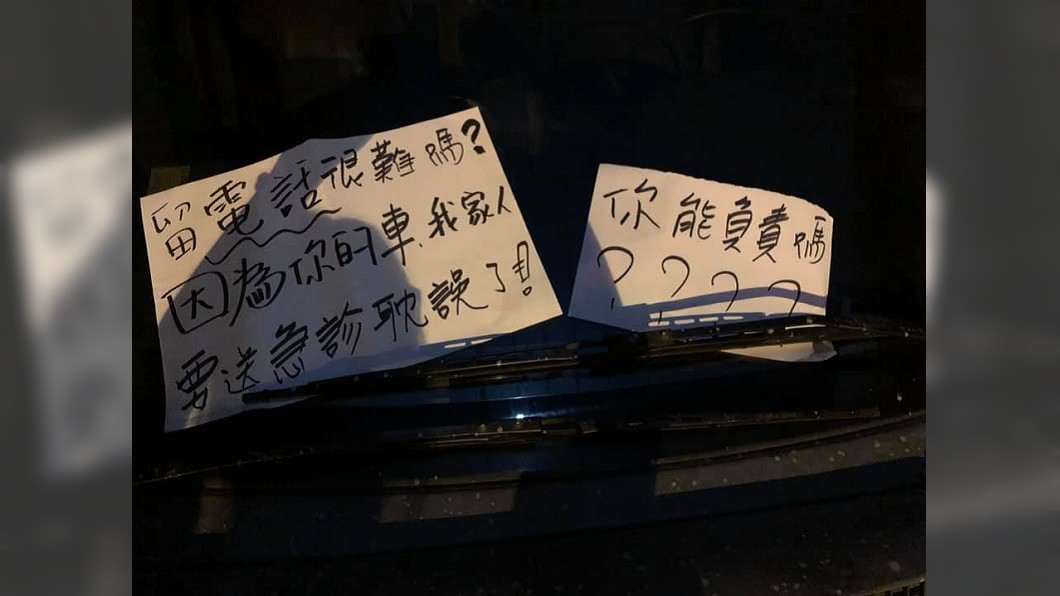 留電話很難嗎?
因為你的車,我家人
要送急診耽誤了!!
你能負責嗎
????